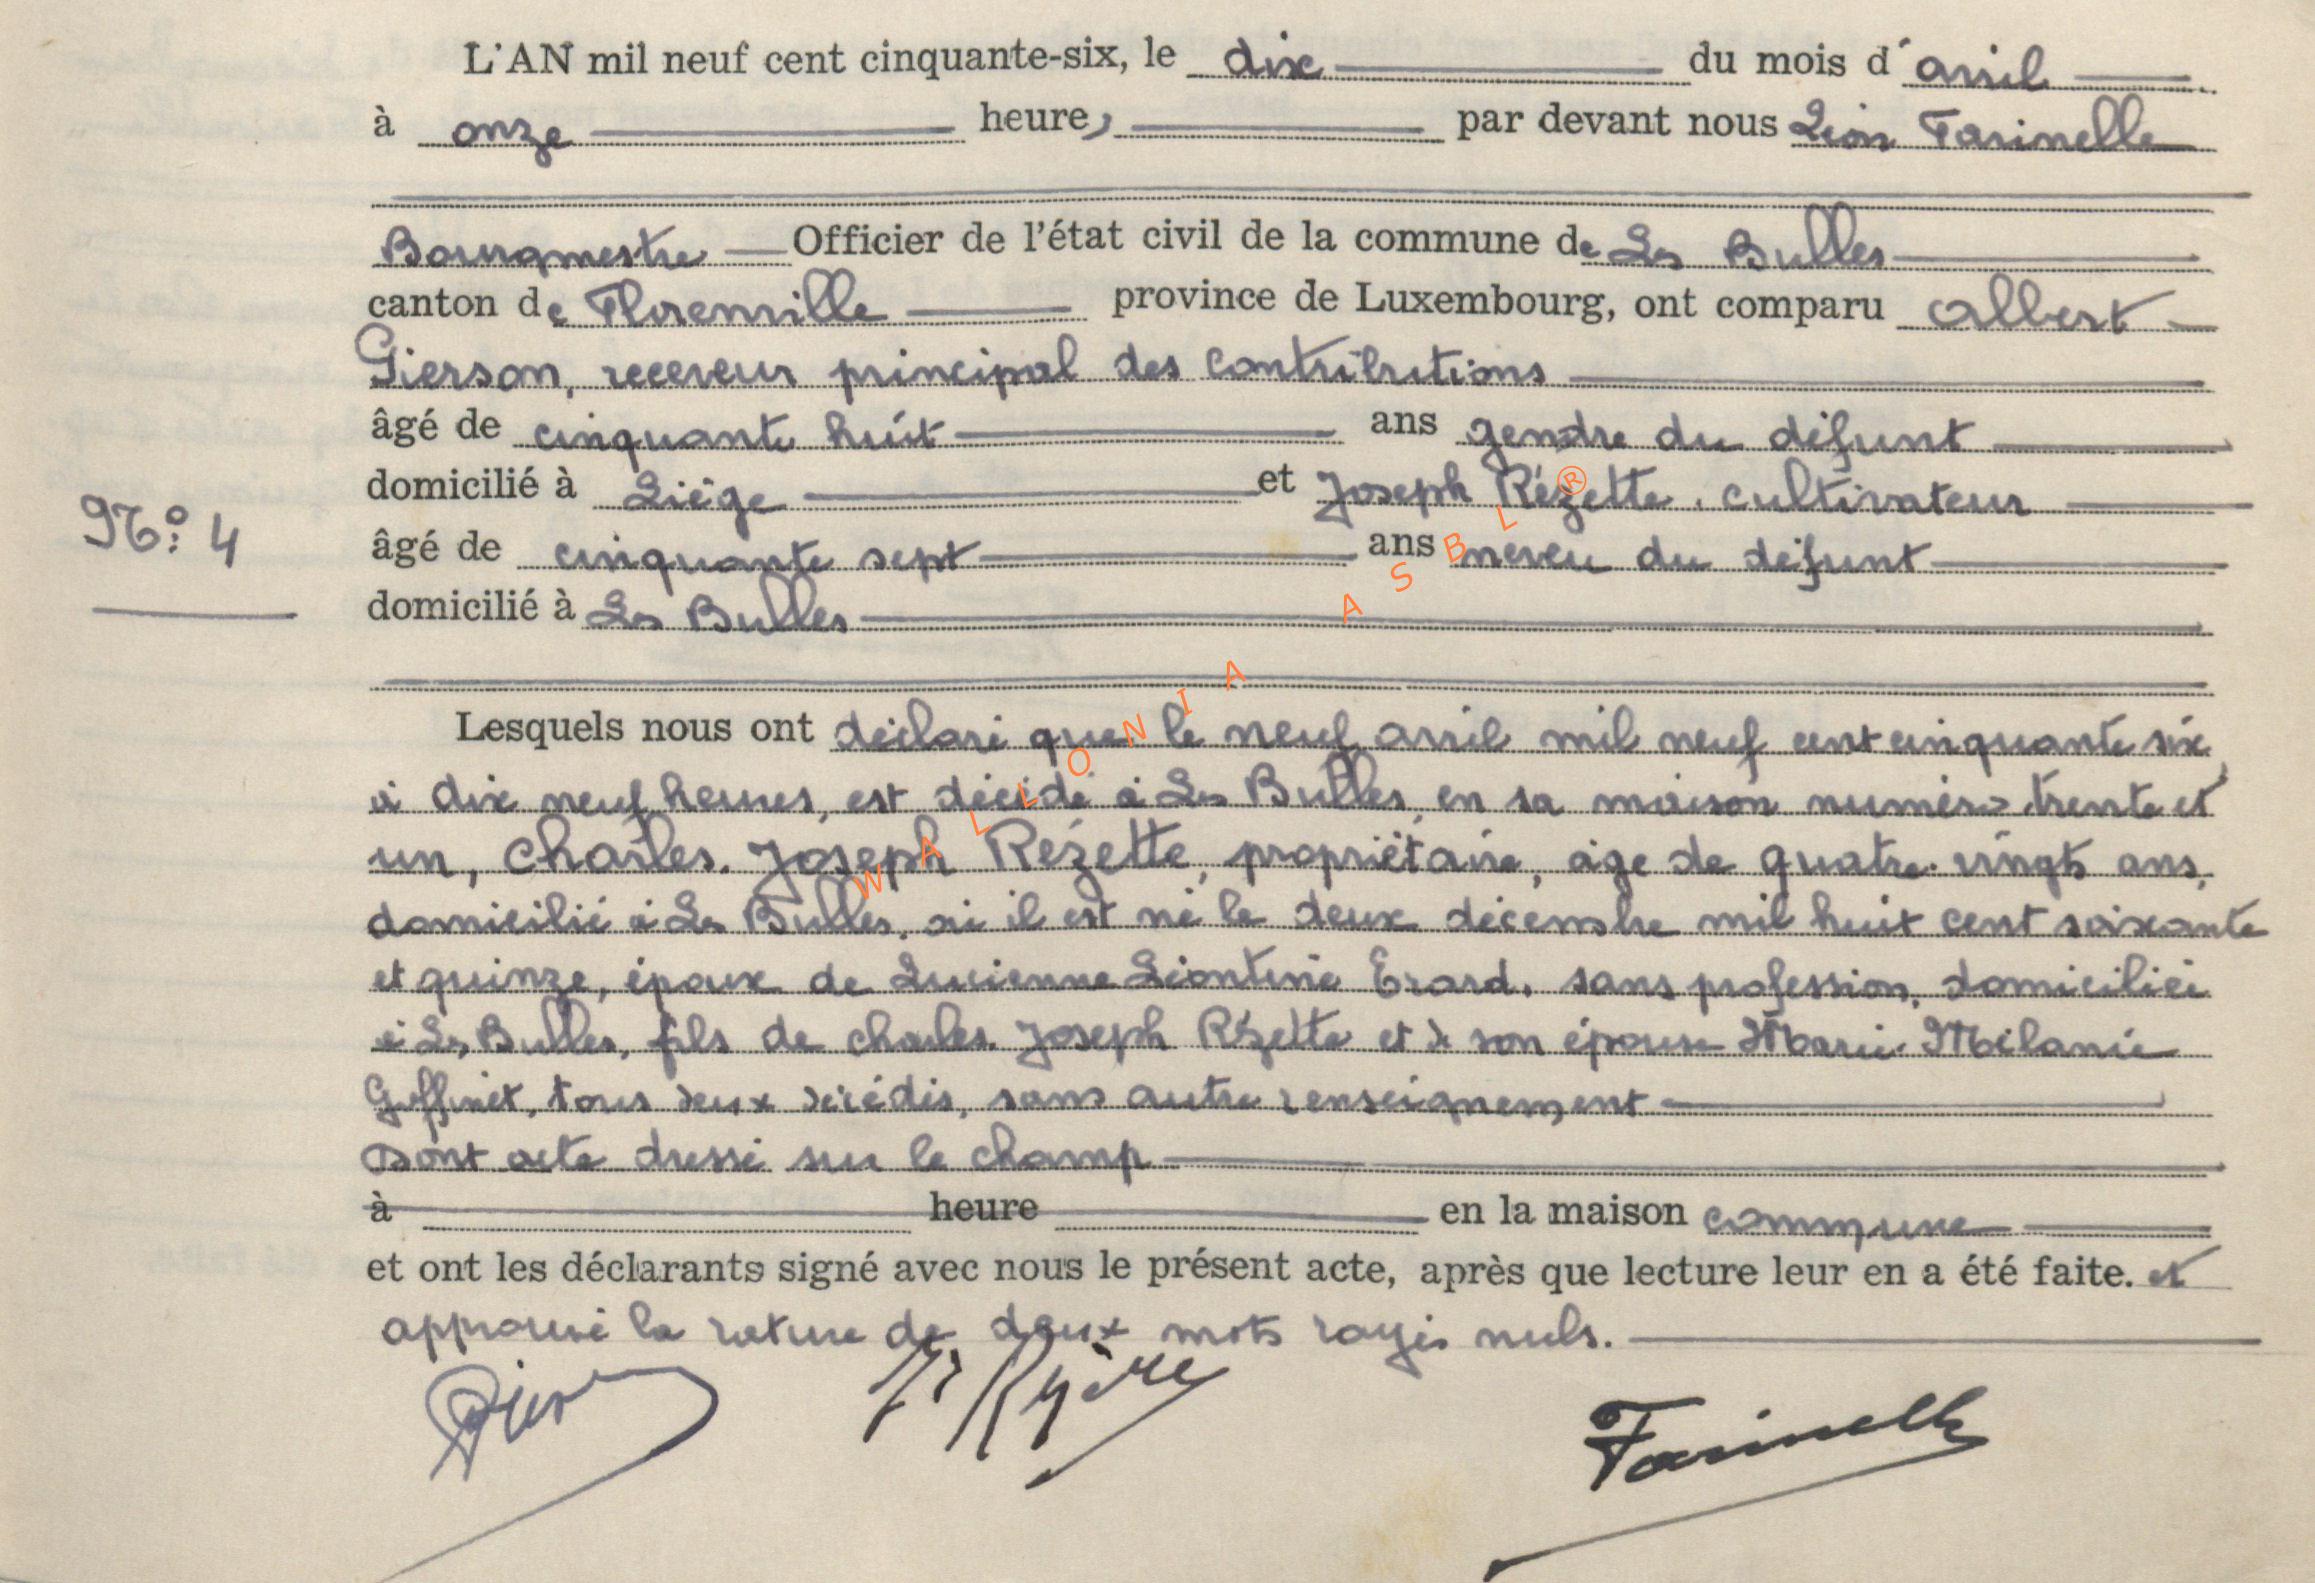 L'AN mil neuf cent cinquante-six, le dix du mois d'avril
à onze heures par devant nous Léon Farinelle
Bourgmestre Officier de l'état civil de la commune de Les Bulles
canton de Florenville province de Luxembourg, ont comparu Albert
Gierson, receveur principal des contributions
âgé de cinquante huit ans gendre du défunt
domicilié à Liége et Joseph Rézette, cultivateur
N° 4
âgé de cinquante sept ans neveu du défunt
domicilié à Les Bulles
Lesquels nous ont déclaré que le neuf avril mil neuf cent cinquante six
à dix neuf heures, est décédé à Les Bulles, en sa maison numéro trente et
un, Charles-Joseph Rézette, propriétaire, âgé de quatre-vingts ans,
domicilié à Les Bulles, où il est né le deux décembre mil huit cent soixante
et quinze, époux de Lucienne Léontine Erard, sans profession, domiciliée
à Les Bulles, fils de Charles-Joseph Rézette et de son épouse Marie-Mélanie
Goffinet, tous deux décédés, sans autre renseignement
Dont acte dressé sur le champ
à heure en la maison commune
et ont les déclarants signé avec nous le présent acte, après que lecture leur en a été faite. et
approuvé la rature de deux mots rayés nuls.
Farinelle
WALLONIA ASBL ®